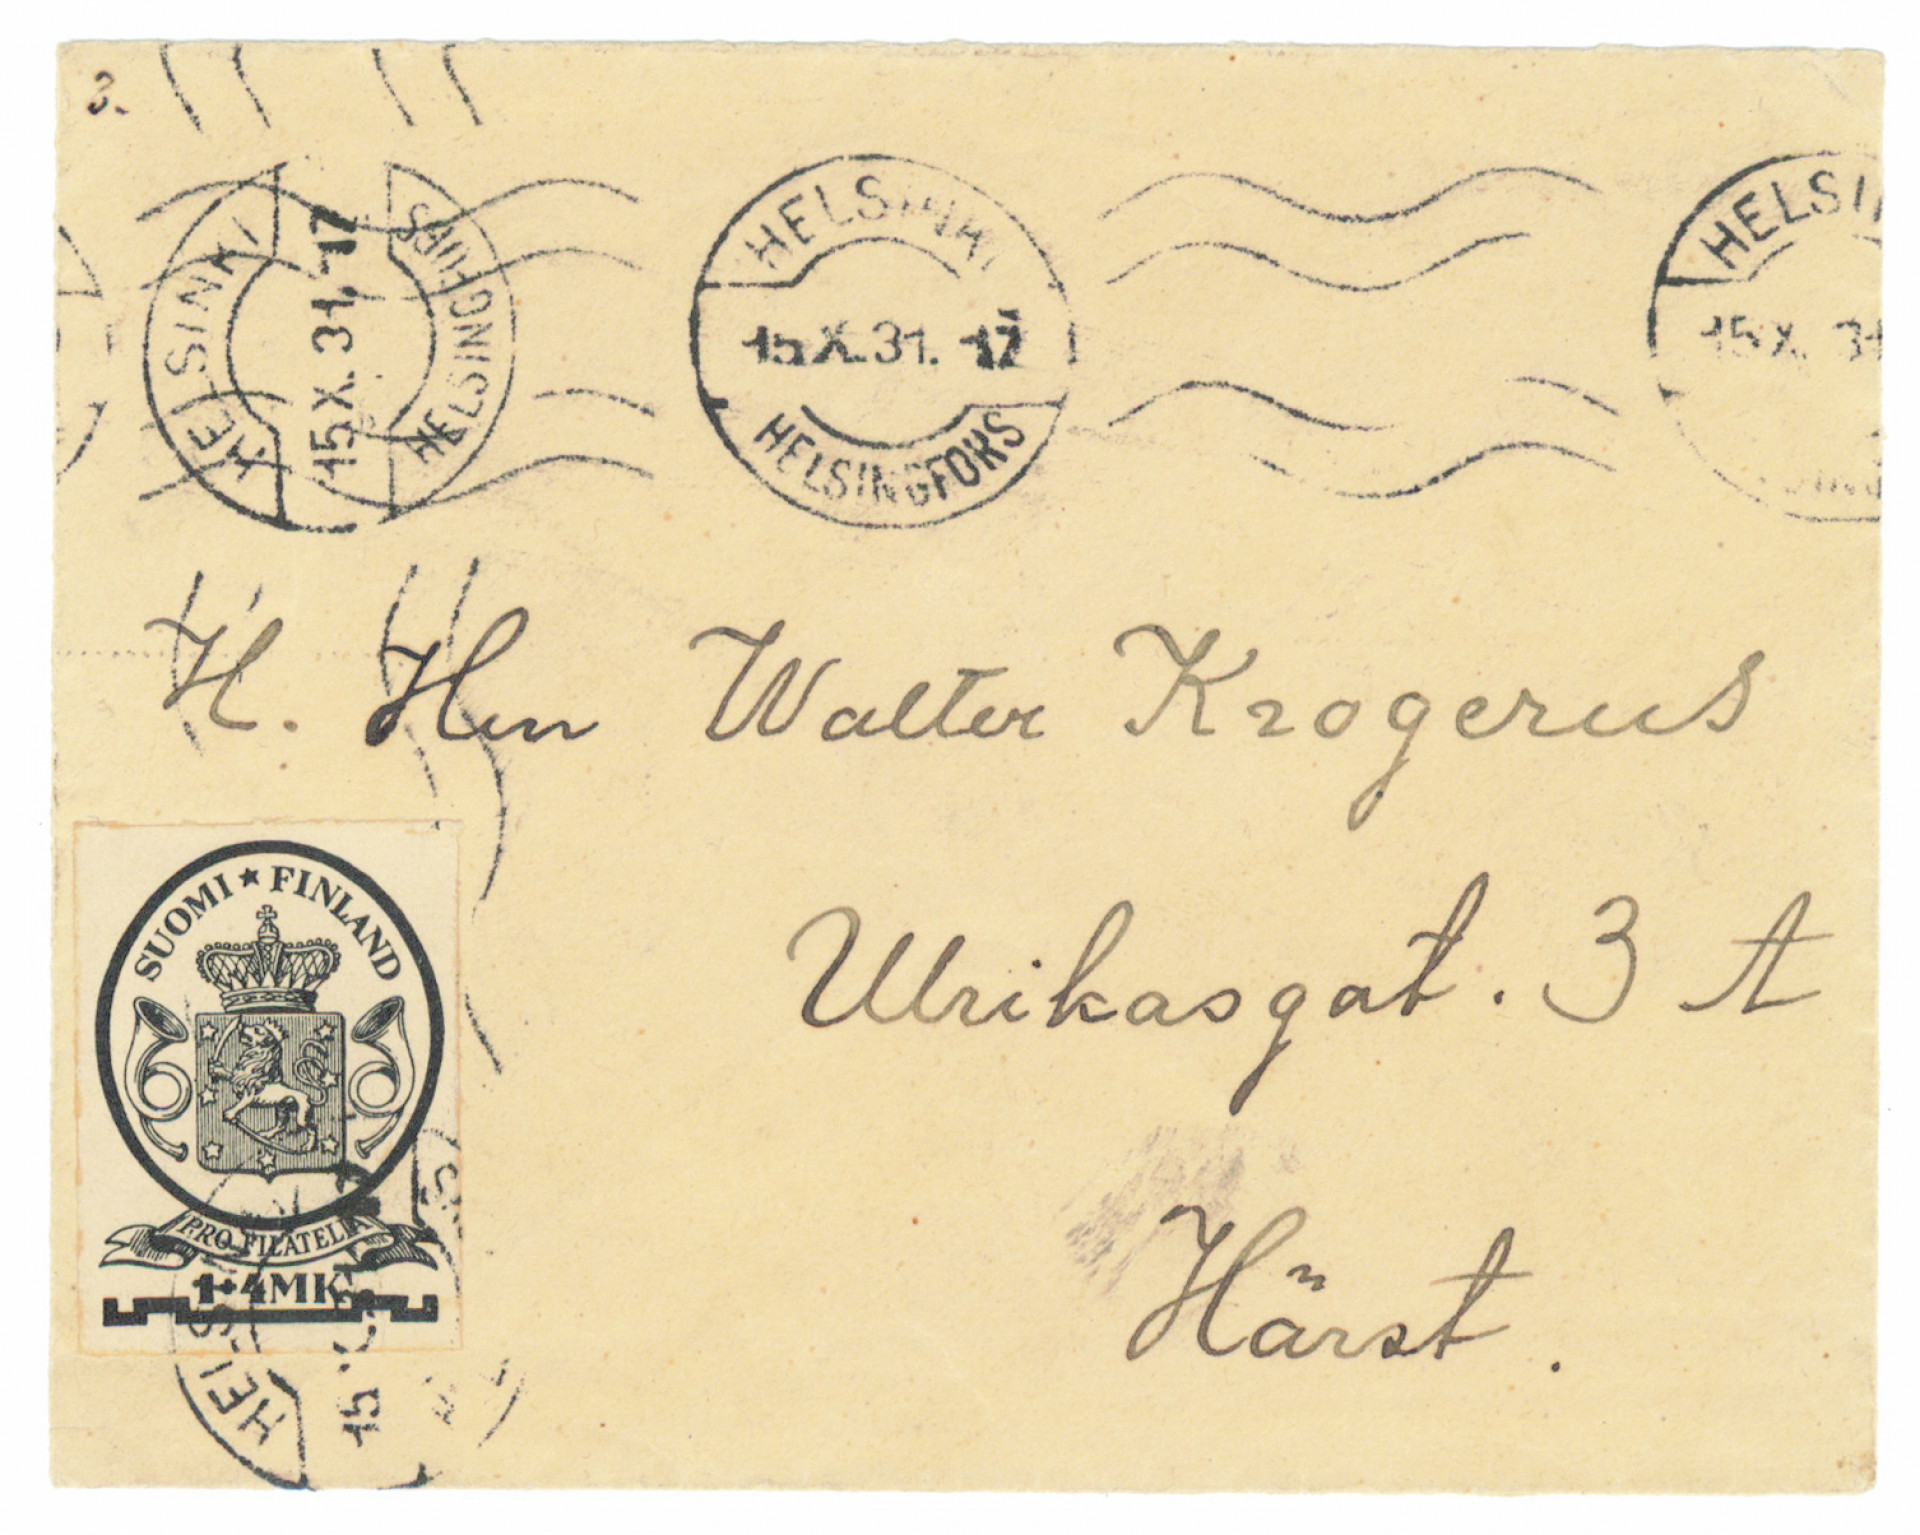 2.
HELSINKI
15 X. 31. 17
HELSINGFORS
HELSINKI
15 X. 31. 17
HELSINGFORS
HELSIN
15 X. 31
H. Herr Walter Krogerus
Ulrikasgat. 3 A
Härst.
SUOMI ★ FINLAND
PRO FILATELIA
1+4 MK
HEL
15